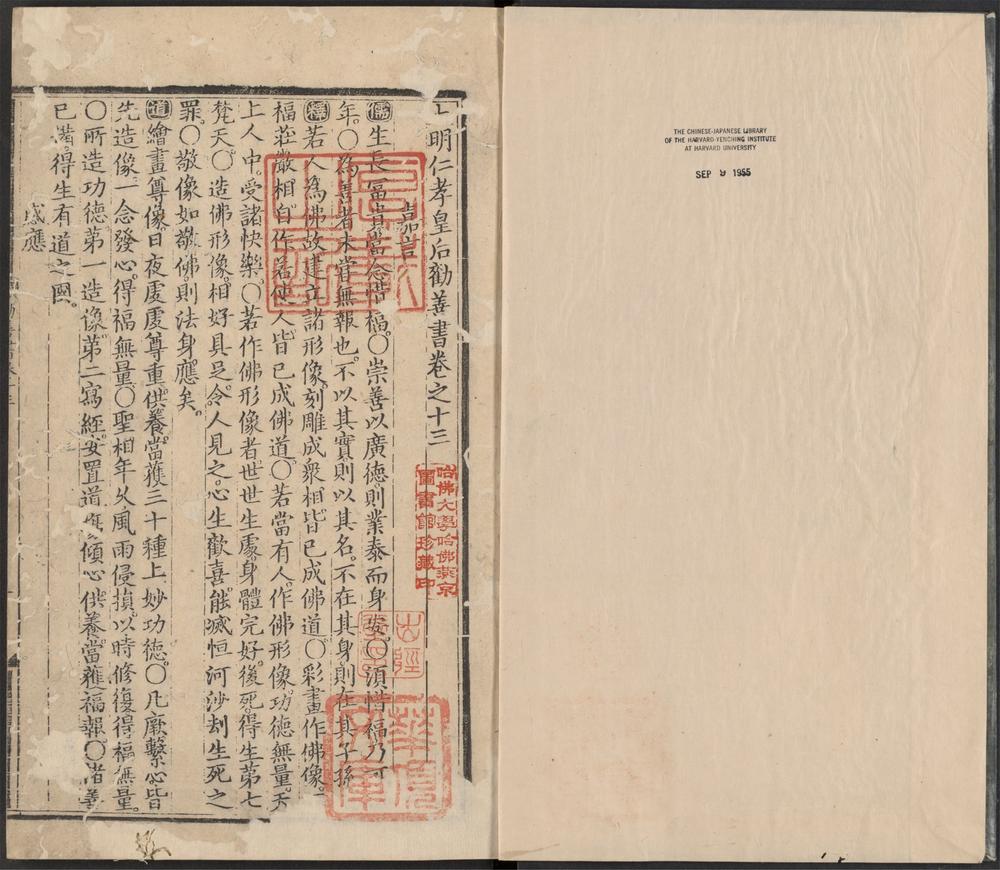 大明仁孝皇后勸善書卷之十三
嘉言
儒生長富貴當念惜福。○崇善以廣德。則業泰而身安。○須惜福乃可
年。○為善者未嘗無報也。不以其實則以其名。不在其身則在其子孫
釋若人為佛故建立諸形像。刻雕成衆相。皆已成佛道。○彩畫作佛像。
福莊嚴相。自作若使人。皆已成佛道。○若當有人。作佛形像。功德無量。天
上人中。受諸快樂。○若作佛形像者。世世生處。身體完好。後死。得生第七
梵天。○造佛形像。相好具足。令人見之。心生歡喜。能滅恒河沙刼生死之
罪。○敬像如敬佛。則法身應矣。
道繪畫尊像。日夜處處尊重供養。當獲三十種上妙功德。○凡厥繫心。皆
先造像。一念發心。得福無量。○聖相年久。風雨侵損。以時修復。得福無量。
○所造功德。第一造像。第二寫經。安置道 傾心供養。當獲福報。○諸善
已 得生有道之國。
感應
哈佛大學哈佛燕京
圖書館珍藏印
THE CHINESE-JAPANESE LIBRARY
OF THE HARVARD-YENCHING INSTITUTE
AT HARVARD UNIVERSITY
SEP 9 1955